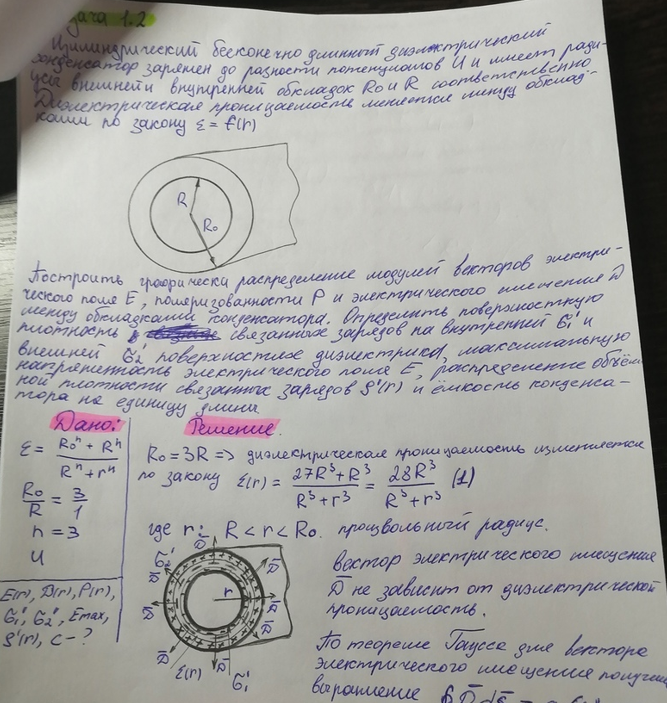 дача 1.2
Цилиндрический бесконечно длинный диэлектрический
конденсатор заряжен до разности потенциалов U и имеет ради-
усы внешней и внутренней обкладок Ro и R соответственно
Диэлектрическая проницаемость меняется между обклад-
ками по закону ε = f(r)
R
Ro
Построить графически распределение модулей векторов электри-
ческого поля E, поляризованности P и электрического смещения D
между обкладками конденсатора. Определить поверхностную
плотность связанных зарядов на внутренней σ₁' и
внешней σ₂' поверхностях диэлектрика, максимальную
напряженность электрического поля E, распределение объём-
ной плотности связанных зарядов ρ'(r) и ёмкость конденса-
тора на единицу длины
Дано:
ε = (Roⁿ + Rⁿ)/(Rⁿ + rⁿ)
Ro/R = 3/1
n = 3
U
E(r), D(r), P(r),
σ₁', σ₂', Emax,
ρ'(r), C – ?
Решение.
Ro = 3R => диэлектрическая проницаемость изменяется
по закону ε(r) = (27R³ + R³)/(R³ + r³) = 28R³/(R³ + r³) (1)
где r: R < r < Ro. произвольный радиус.
σ₂'
D̄ D̄ D̄ D̄ D̄ D̄ D̄ D̄
r
ε(r)
σ₁'
вектор электрического смещения
D̄ не зависит от диэлектрической
проницаемость.
По теореме Гаусса для вектора
электрического смещения получим
выражение